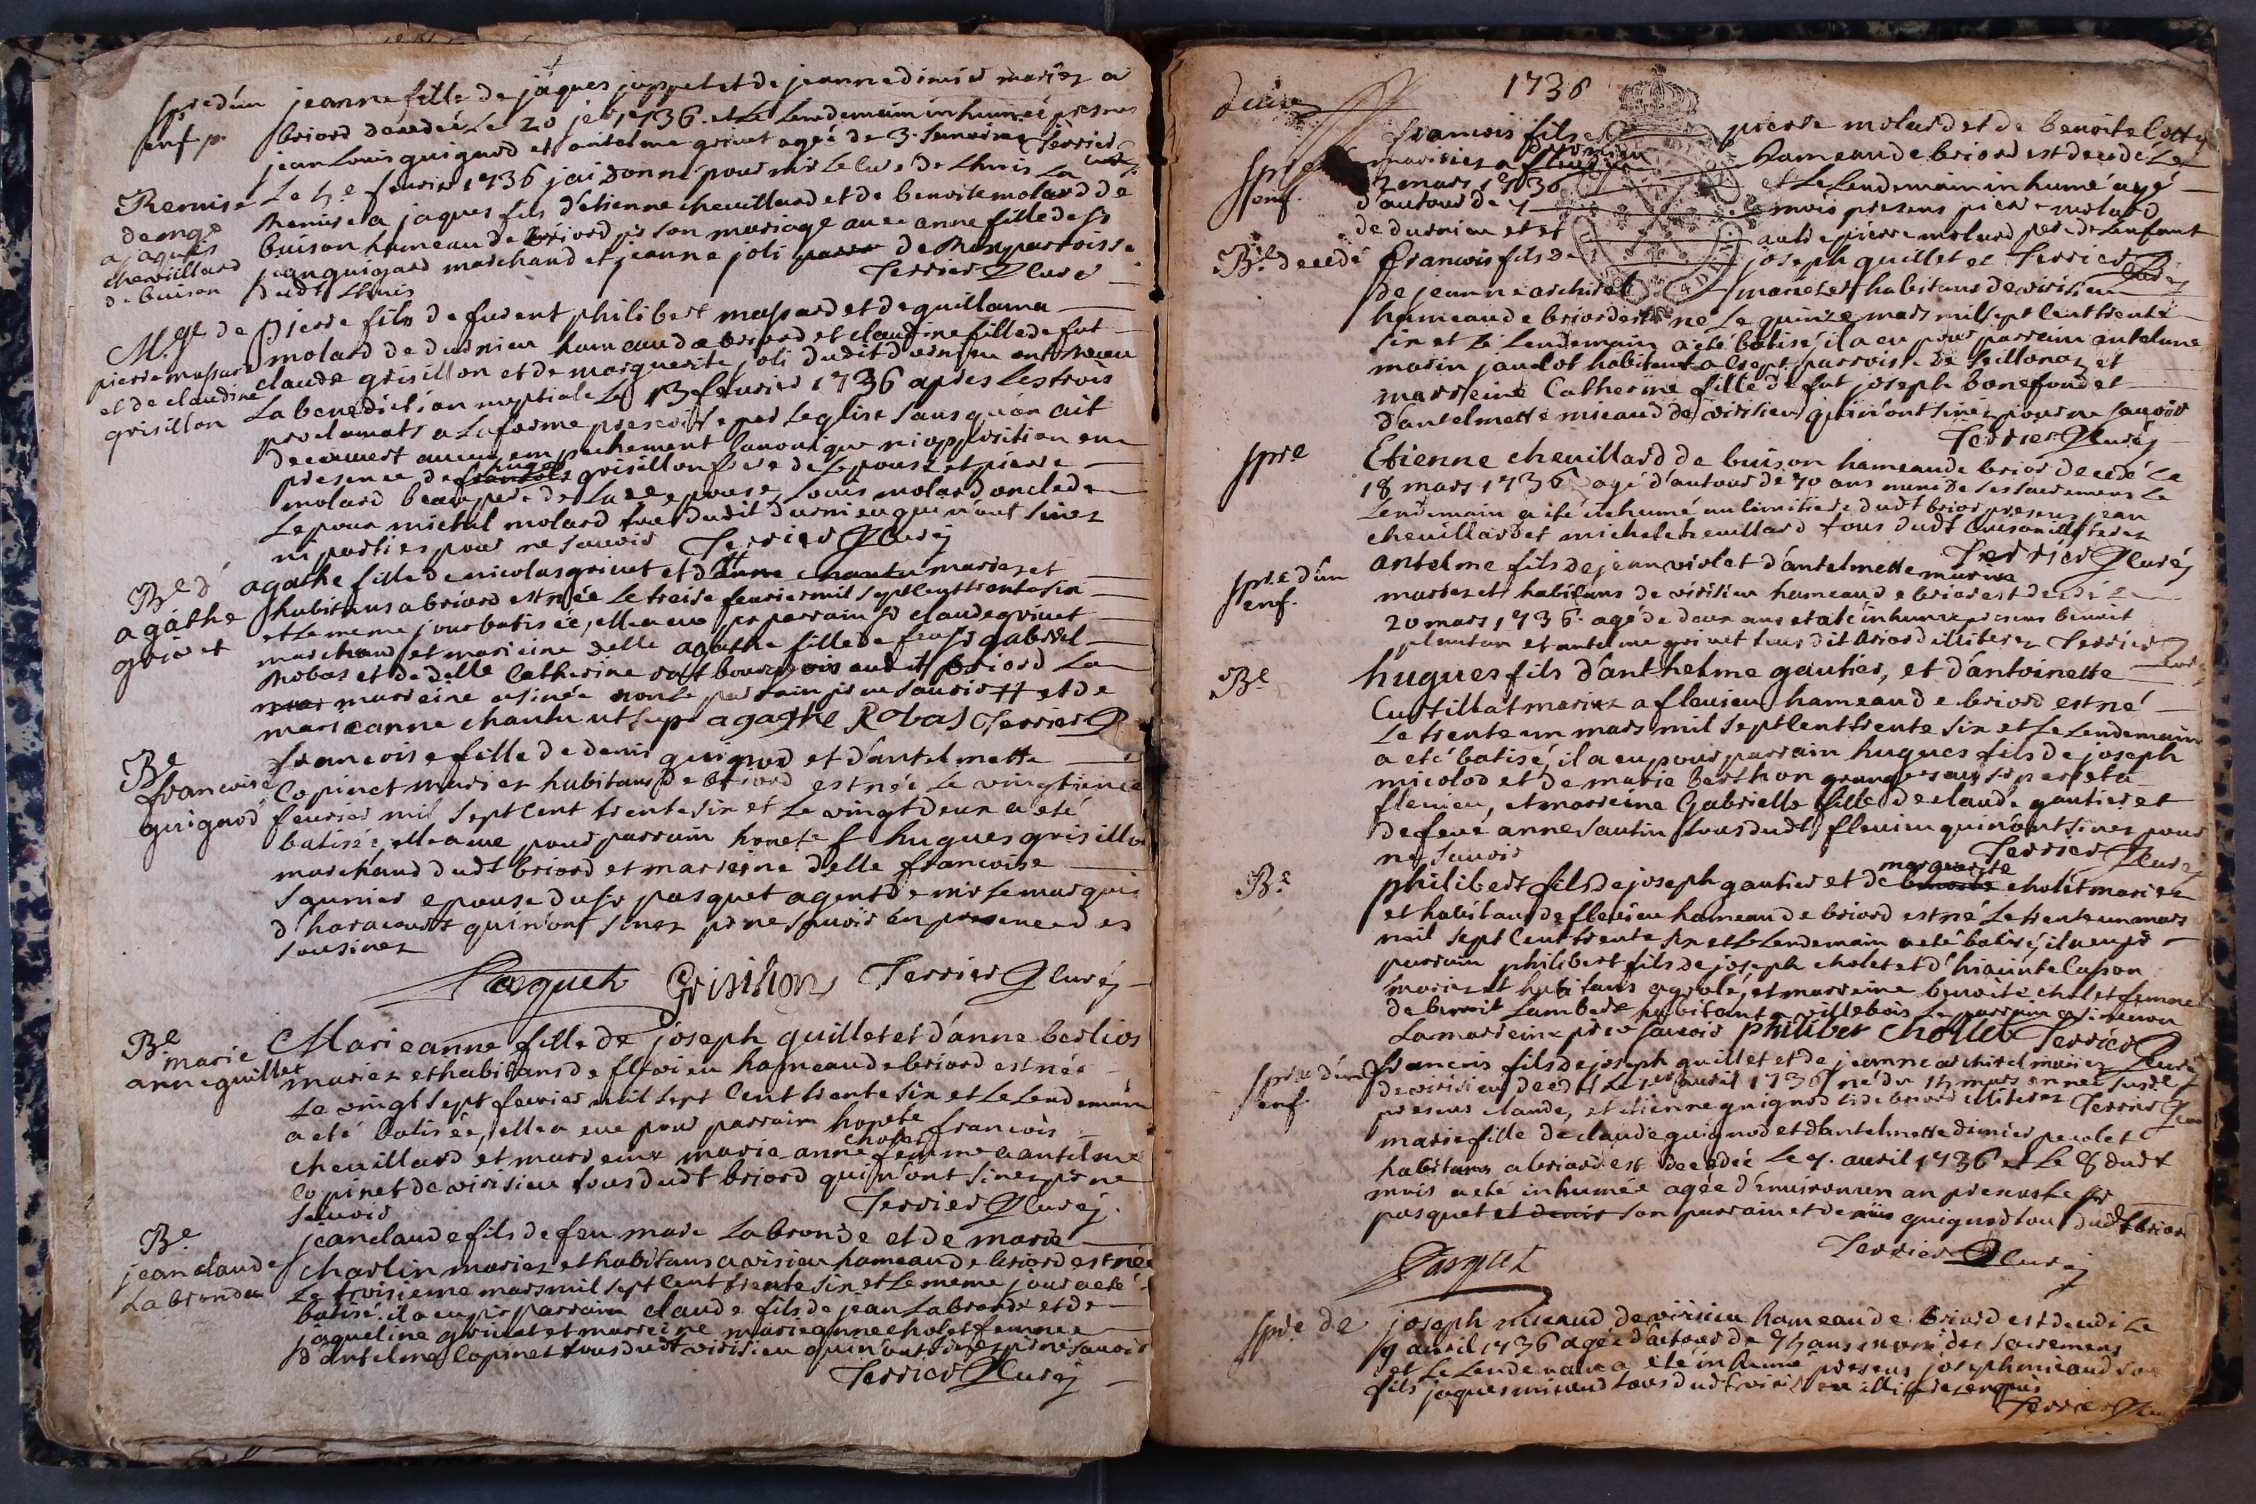 jeanne fille de jaques joppet et de jeanne dimier mariez a
briord decedée le 20 je[r] 1736 et le lendemain inhumée presens
jean louis guigard et antelme grivet agée de 3 semaines Terrier curé
Remise de mge a jaques chevillard de buison
Le 5e fevrier 1736 jai donné pour mr le curé de lhuis la
Remise a jaques fils d'etienne chevillard et de benoite molard de
buison hameau de briord pr son mariage avec anne fille de sr
jean guigard marchand et jeanne joli de Rom parroisse
dudt lhuis Terrier Curé
M.ge de pierre massard et de claudine grisillon
Pierre fils de furent philibert massard et de guillauma
molard de dudnieu hameau de briord et claudine fille de fut
claude grisillon et de marguerite joli dudit durnieu ont receu
La benediction nuptiale Le 13 fevrier 1736 apres les trois
proclamats a la forme prescrite par Leglise sans qu'on ait
decouvert aucun empechement Canonique ni opposition en
presence de hugue grisillon frere de Lepouse et pierre
molard beaupere de Lade epouse, Louis molard oncle de
Lepoux michel molard tous dudit durnieu qui n'ont sinez
ni parties pour ne savoir Terrier Curé
Be d'agathe grivet
agathe fille de nicolas grivet et d'anne chantu mariez et
habitans a briord est née le treise fevrier mil sept cent trente six
et le meme jour batisée, elle a eu pr parrain sr claude grivet
marchand et marieine delle agathe fille de feu sr gabriel
Robas et de delle Catherine bourgeois audit Briord La
marreine a sinée non Le parrain pr ne savoir # et de
marieanne chantu ut supr agathe Robas Terrier
Be francoise guignod
francoise fille de denis guignod et d'antelmette
Copinet mariez habitans de briord est née Le vingtieme
fevrier mil sept cent trente six et Le vingt deux a eté
batisée, elle a eue pour parrain honete f hugues grisillon
marchand dudt briord et marreine delle francoise
saunier epouse du sr pasquet agent de mr Le marquis
d'haraucourt qui n'ont sinez pr ne savoir en presence des
sousinez
Pasquet Grisillon Terrier Curé
Be marie anne guillet
Marieanne fille de joseph guillet et d'anne berlios
mariez et habitans de flevieu hameau de briord est née
Le vingt sept fevrier mil sept cent trente six et Le Lendemain
a eté batisée, elle a eue pour parrain honete francois
chevillard et marreine marie anne cholet femme a antelme
Copinet de virisieu tous dudt briord qui n'ont sinez pr ne
savoir Terrier Curé
Be jean claude Labronde
jean claude fils de feu marc Labronde et de marie
charlin mariez et habitans a visieu hameau de briord est né
Le troisieme mars mil sept cent trente six et Le meme jour a eté
batisé. il a eu pr parrain claude fils de jean Labronde et de
jaqueline grivet et marreine marieanne cholet femme
d'antelme Copinet tous dudt virisieu qui n'ont sinez pr ne savoir
Terrier Curé
1736
francois fils de pierre molard et de benoite
mariez a durnieu hameau de briord est decedé Le
2 mars 1736 et Le Lendemain inhumé agé
d'autour de 7 mois presens pierre molard
de durnieu et et autre pierre molard pere de Lenfant
Terrier Curé
Be decedé
Francois fils de joseph guillet et
de jeanne archirel mariez et habitans de virisieu
hameau de briord est né Le quinze mars mil sept cent trente
six et Le Lendemain a eté batisé, il a eu pour parrain antelme
marin jaudot habitant a Crept parroisse de seillonaz et
marreine Catherine fille de fut joseph bonefond et
d'antelmette miraud de virisieu qui n'ont sinez pour ne savoir
Terrier Curé
spre
Etienne chevillard de buison hameau de briord decedé Le
18 mars 1736 agé d'autour de 70 ans muni de ses sacremens Le
Lendemain a eté inhumé au cimetiere dudt briord presens jean
chevillard et michel chevillard tous dudt buison illiterez
Terrier Curé
spre d'un enf.
antelme fils de jean violet d'antelmette
mariez et habitans de virisieu hameau de briord est decedé Le
20 mars 1736 agé de deux ans et a eté inhumé presens benoit
plantan et antelme grivet tous dit briord illiterez Terrier Curé
Be
hugues fils d'anthelme gautier, et d'antoinette
Curtillat mariez a flevieu hameau de briord est né
Le trente un mars mil sept cent trente six et Le Lendemain
a eté batisé, il a eu pour parrain hugues fils de joseph
micolod et de marie berthon grangers au sr perret a
flevieu, et marreine Gabrielle fille de claude gautier et
de feue anne sautin tous dudt flevieu qui n'ont sinez pour
ne savoir Terrier Curé
Be
philibert fils de joseph gautier et de marguerite cholet mariez
et habitans de flevieu hameau de briord est né Le trente un mars
mil sept cent trente six et Le Lendemain a eté batisé, il a eu pr
parrain philibert fils de joseph cholet et d'hiacinte Casson
mariez et habitans a grolé, et marreine benoite cholet femme
de benoit Lambert habitant a villebois Le parrain a sine non
La marreine pr ne savoir philiber Chollet Terrier Curé
spre d'un enf.
francois fils de joseph guillet et de jeanne archirel mariez
de virisieu decedé Le 1er avril 1736 né du 15 mars
presens claude, et etienne guignod de briord illiterez Terrier Curé
marie fille de claude guignod et d'antelmette dimier
habitans a briord est decedée Le 7. avril 1736 et Le 8 dudt
mois a eté inhumée agée d'environ un an presens Le sr
pasquet et denis son parrain et denis guignod tous dudt briord
Terrier Curé
Pasquet
spre de
joseph miraud de virisieu hameau de Briord est decedé Le
9 avril 1736 agée d'autour de 75 ans muni des sacremens
et Le Lendemain a eté inhumé presens joseph miraud son
fils jaques miraud tous dudt virisieu illiterez
Terrier Curé